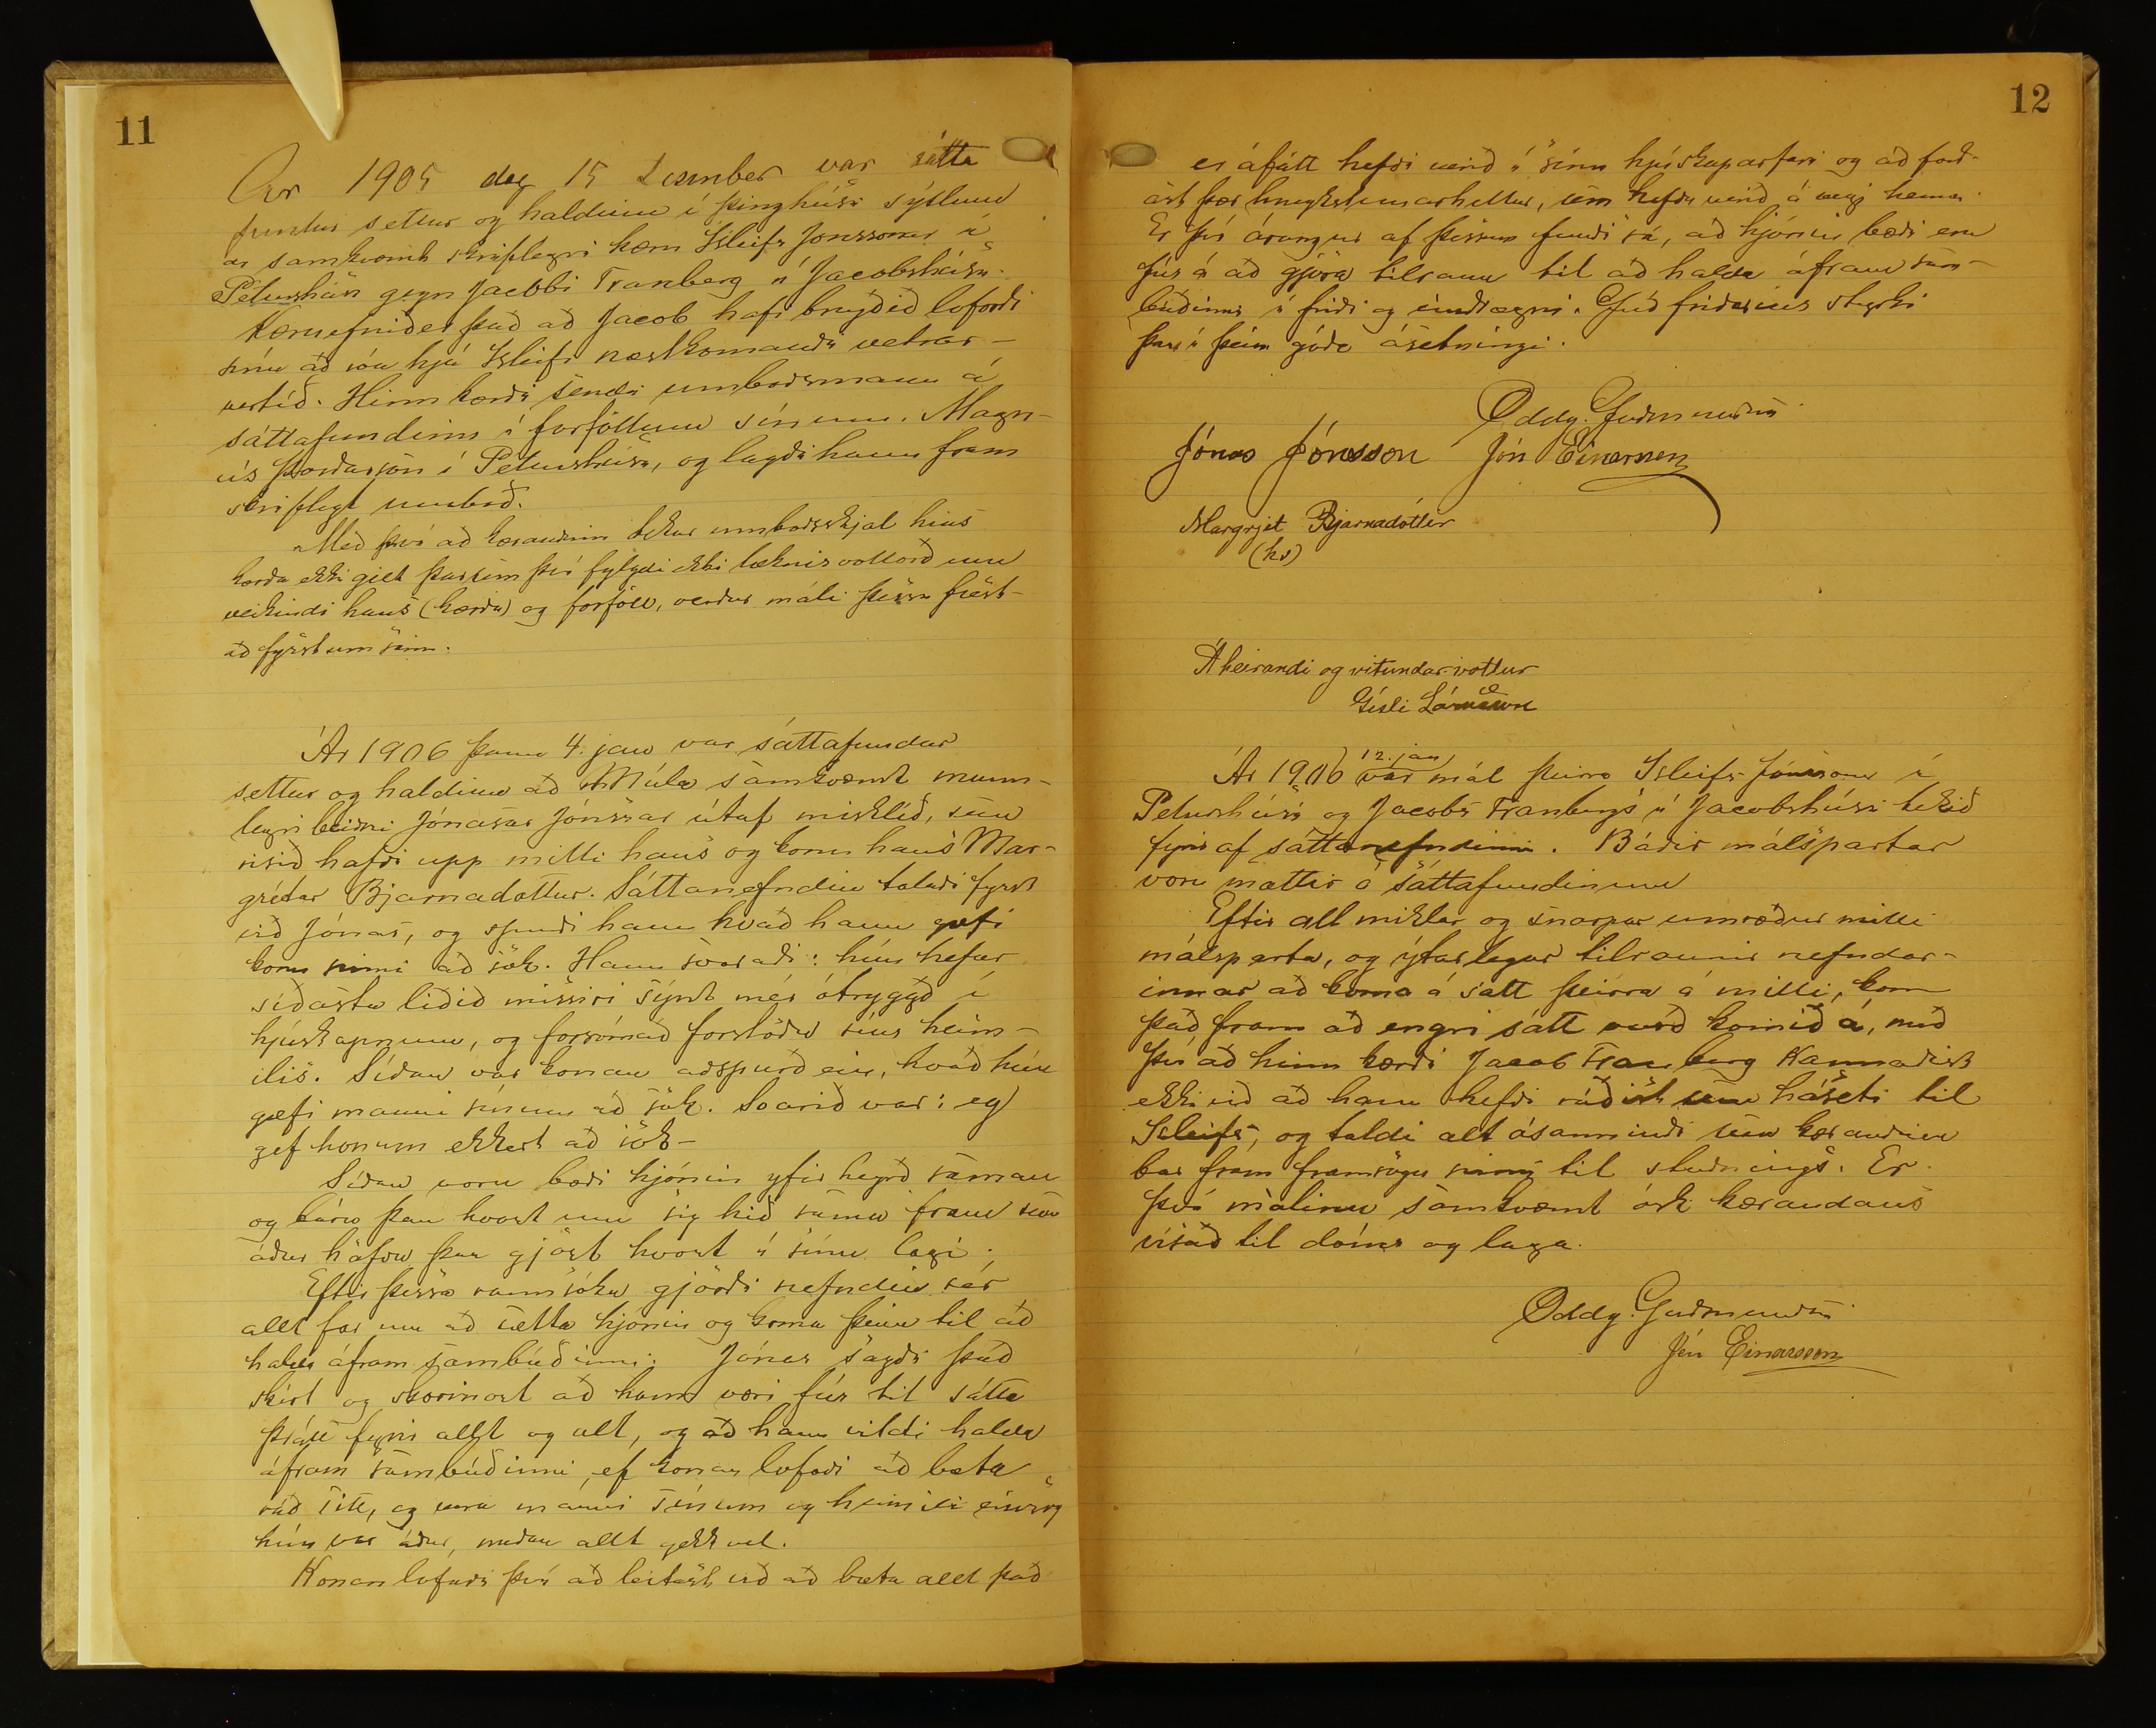 11
Ár 1905 dag 15 Desember var sátta
fundur settur og haldinn í þinghúsi sýslunn
ar samkvæmt skriflegri kæru Ísleifs Jónssonar í
Péturshúsi gegn Jacobi Tranberg í Jacobshúsi.
Kæruefnið er það að Jacob hafi brugðið loforði
sínu að róa hjá Ísleifi næstkomandi vetrar-
vertíð. Hinn kærði sendi umboðsmann á
sáttafundinn í forföllum sínum, Magn-
ús Þórðarson í Péturshúsi, og lagði hann fram
skriflegt umboð.
Með því að kærandinn tekur umboðsskjal hins
kærða ekki gilt þar sem því fylgdi ekki læknisvottorð um
veikindi hans (kærða) og forföll, verður máli þessu frest-
að fyrst um sinn.
Ár 1906 þann 4. jan var sáttafundur
settur og haldinn að Múla samkvæmt munn-
legri beiðni Jónasar Jónssonar útaf misklíð, sem
risið hafði upp milli hans og konu hans Mar-
grétar Bjarnadóttur. Sáttanefndin talaði fyrst
við Jónas, og spurði hann hvað hann gæfi
konu sinni að sök. Hann svaraði: hún hefur
síðasta liðið missiri sýnt mér ótryggð í
hjúskapnum, og forsómað forstöðu síns heim-
ilis. Síðan var konan aðspurð ein, hvað hún
gæfi manni sínum að sök. Svarið var: eg
gef honum ekkert að sök-
Síðan voru bæði hjónin yfirheyrð saman
og báru þau hvort um sig hið sama fram sem
áður höfðu þau gjört hvort í sínu lagi.
Eftir þessa rannsókn gjörði nefndin sér
allt far um að sætta hjónin og koma þeim til að
halda áfram sambúðinni. Jónas sagði það
skírt og skorinort að hann væri fús til sátta
þrátt fyrir allt og alt, og að hann vildi halda
áfram sambúðinni, ef konan lofaði að bæta
ráð sitt, og vera manni sínum og heimili eins og
hún var áður, meðan allt gekk vel.
Konan lofaði því að leitast við að bæta allt það
12
er áfátt hefði verið í sínu hjúskaparfari og að forð-
ast þær hneykslunarhellur, sem hefðu verið á vegi hennar.
Er því árangur af þessum fundi sá, að hjónin bæði eru
fús á að gjöra tilraun til að halda áfram sam-
búðinni í friði og eindrægni. Guð friðarins styrki
þau í þeim góða ásetningi.
Oddg. Guðmundsen
Jónas Jónsson Jón Einarsson
Margrjét Bjarnadóttir
(hs)
Áheirandi og vitundar-vottur
Gísli Lárusson
12. jan
Ár 1906 var mál þeirra Ísleifs Jónssonar í
Péturshúsi og Jacobs Tranbergs í Jacobshúsi tekið
fyrir af sáttanefndinni. Báðir málspartar
voru mættir á sáttafundinum
Eftir all miklar og snarpar umræður milli
málsparta, og ýtarlegar tilraunir nefndar-
innar að koma á sátt þeirra á milli, kom
það fram að engri sátt varð komið á, með
því að hinn kærði Jacob Tranberg kannaðist
ekki við að hann hefði ráðist sem háseti til
Ísleifs, og taldi alt ósannindi sem kærandinn
bar fram framsögu sinni til stuðnings. Er
því málinu samkvæmt ósk kærandans
vísað til dóms og laga.
Oddg. Guðmundsen
Jón Einarsson